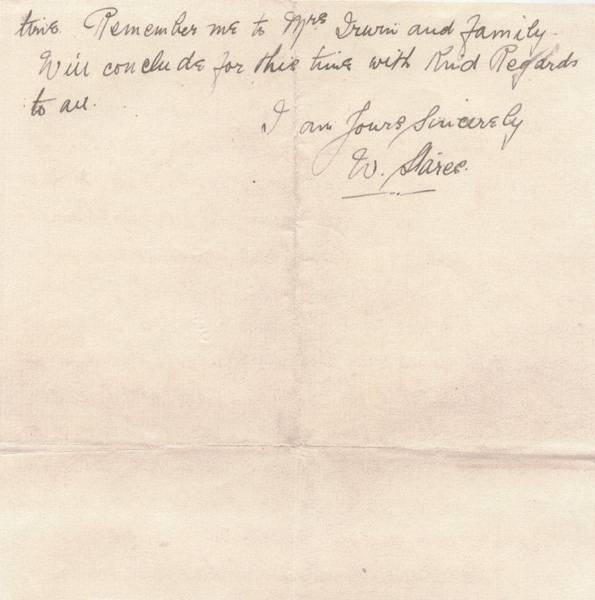 time Remember me to Mrs Irwin and family.
Will conclude for this time with Kind Regards
to all.
I am Yours Sincerely
W.